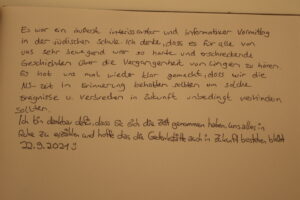 Es war ein äußerst interessanter und informativer Vormittag
in der Jüdischen Schule. Ich denke, dass es für alle von
uns sehr bewegend war so harte und erschreckende
Geschichten über die Vergangenheit von Lingen zu hören.
Es hat uns mal wieder klar gemacht, dass wir die
NS-Zeit in Erinnerung behalten sollten um solche
Ereignisse u. Verbrechen in Zukunft unbedingt verhindern
sollten.
Ich bin dankbar dafür, dass Sie sich die Zeit genommen haben, uns alles in
Ruhe zu erzählen und hoffe das die Gedenkstätte auch in Zukunft bestehen bleibt
22.9.2021